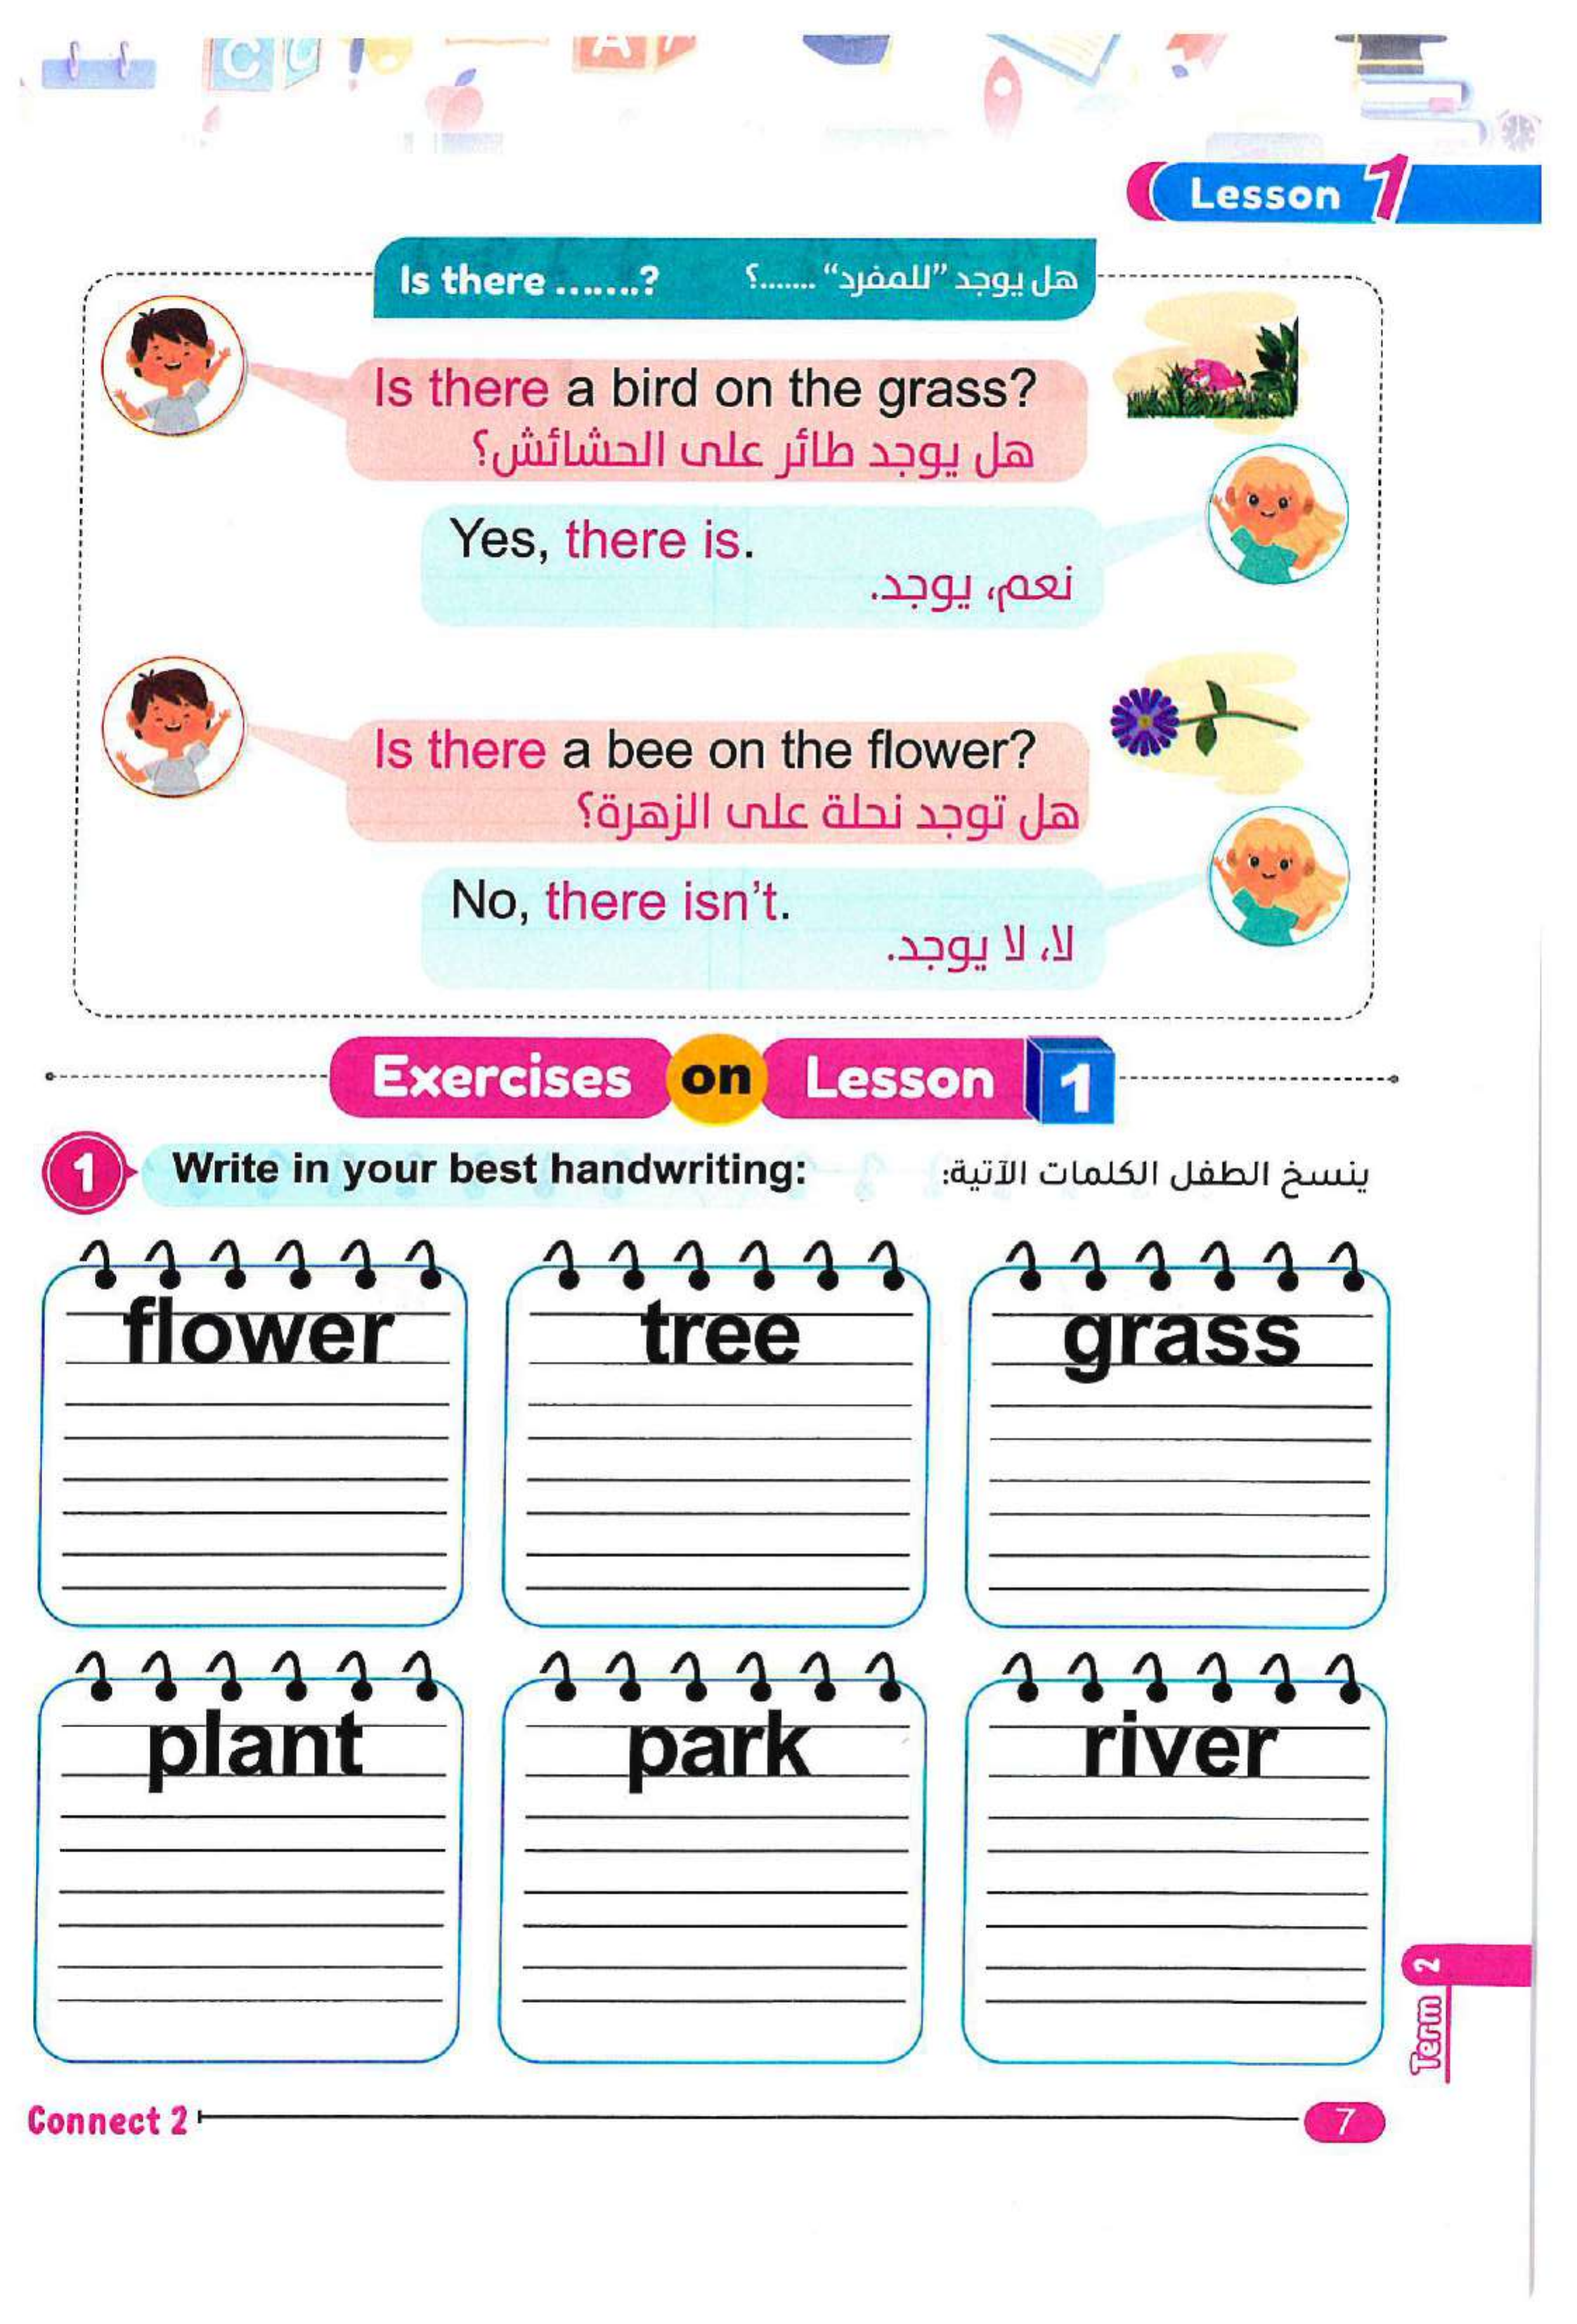 Lesson 1
Is there .......? هل يوجد "للمفرد" .......؟
Is there a bird on the grass?
هل يوجد طائر على الحشائش؟
Yes, there is.
نعم، يوجد.
Is there a bee on the flower?
هل توجد نحلة على الزهرة؟
No, there isn't.
لا، لا يوجد.
Exercises on Lesson 1
1 Write in your best handwriting: ينسخ الطفل الكلمات الآتية:
flower tree grass
plant park river
Term 2
Connect 2 7